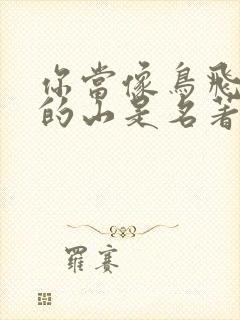 你當像鳥飛
的山是名著
羅賽